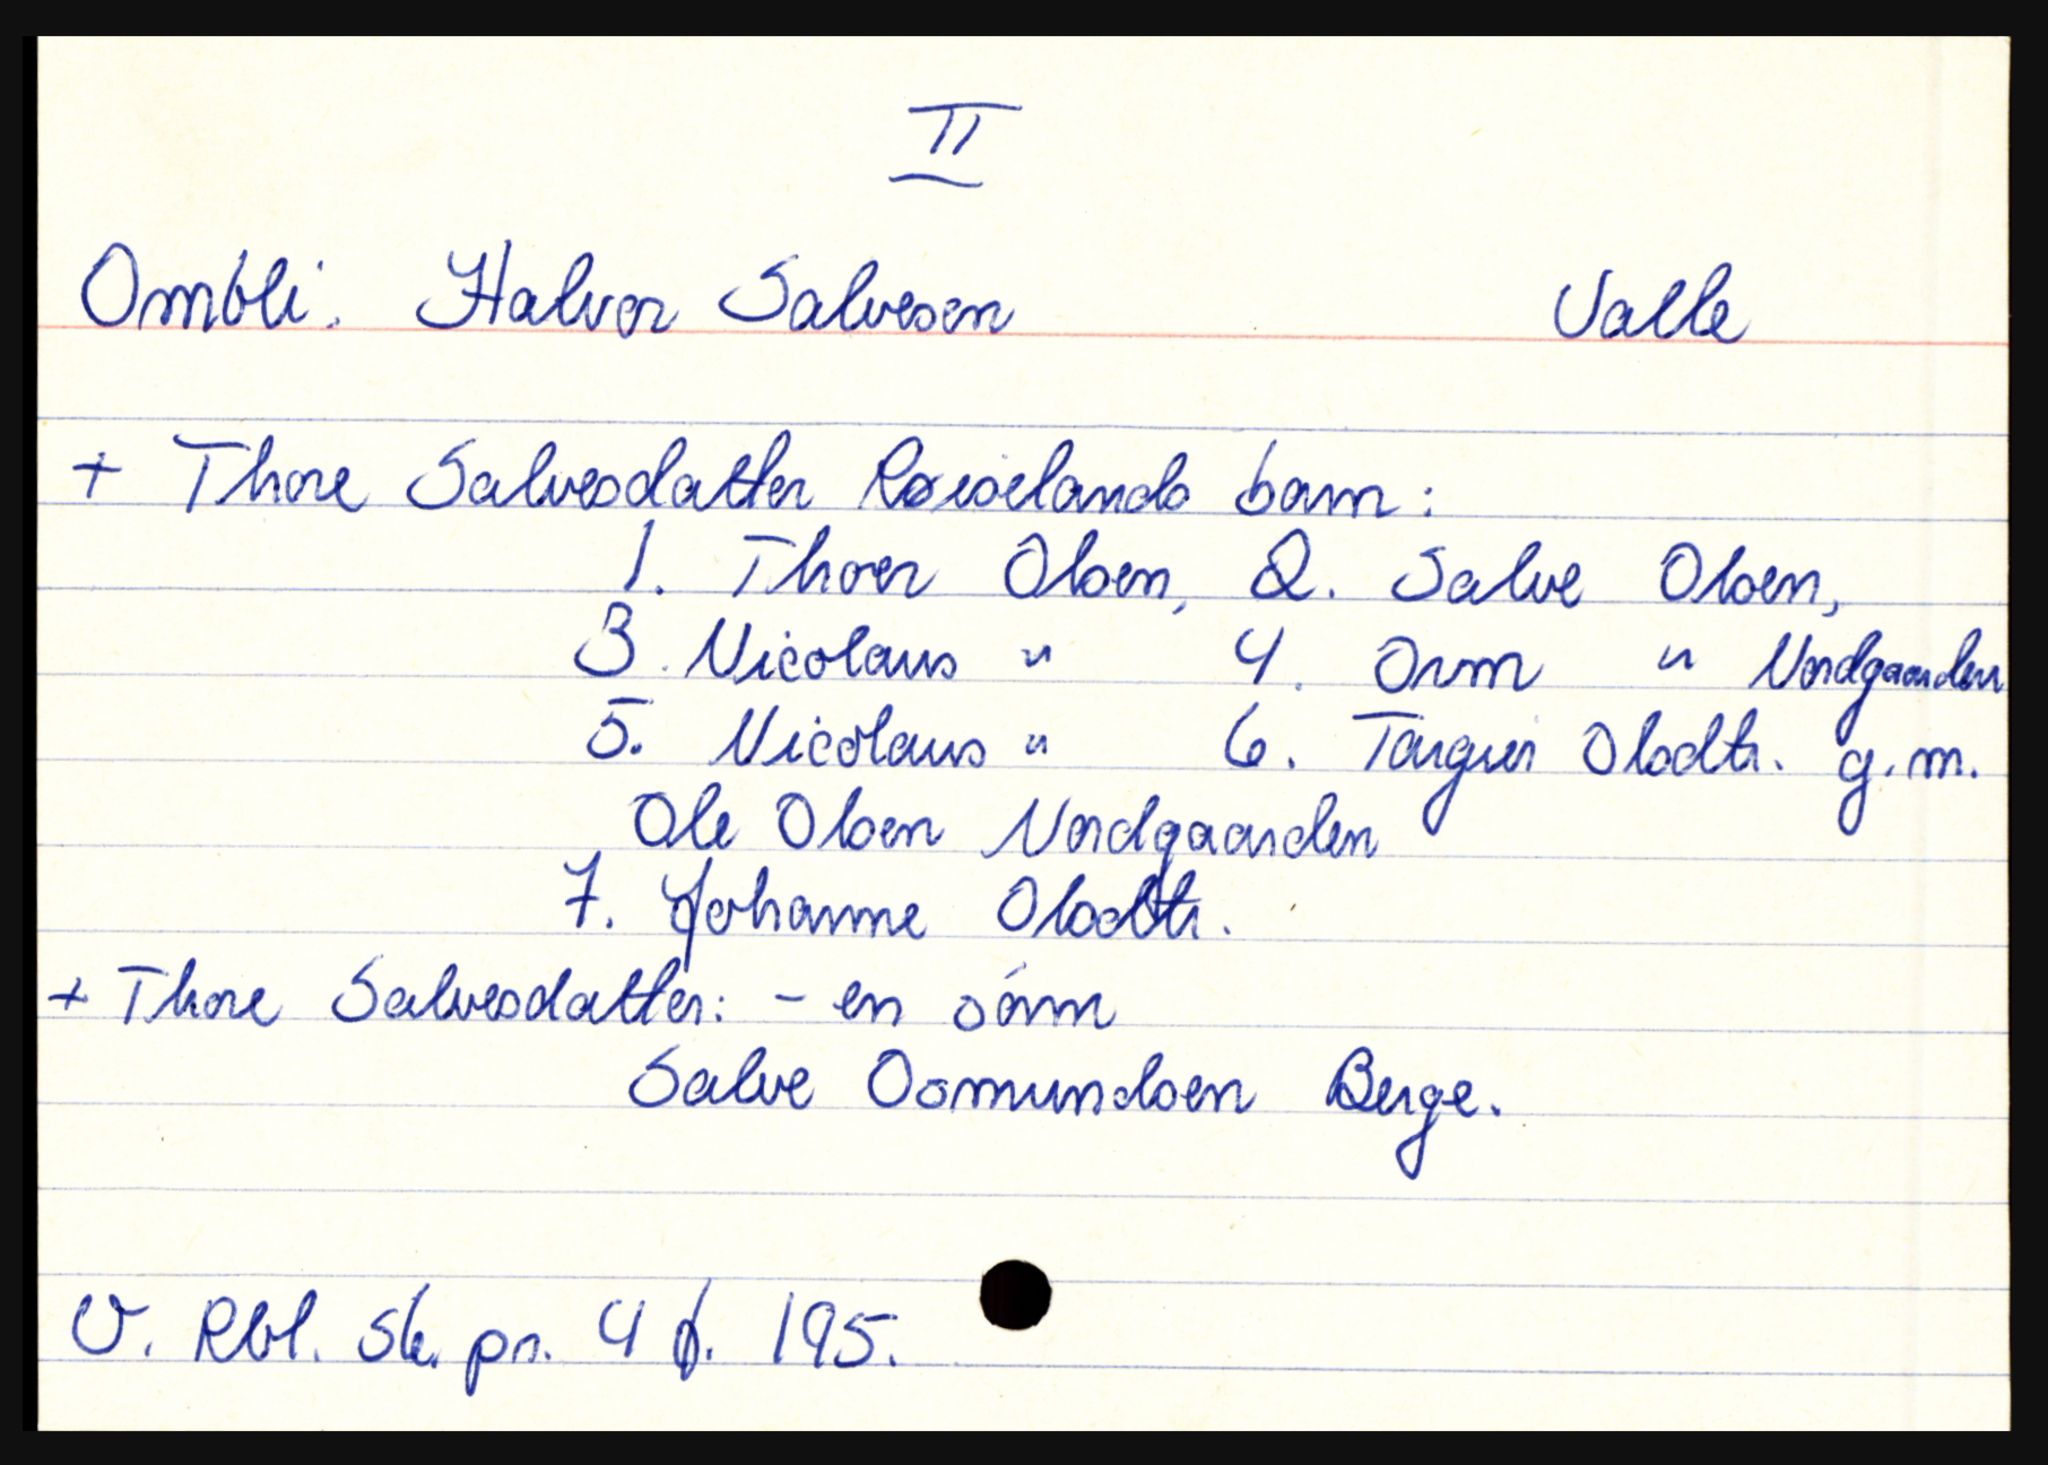 II
Ombli. Halvor Salvesen Valle
+ Thore Salvesdatter Røiselands barn:
1. Thorer Olsen, 2. Salve Olsen,
3. Nicolaus " 4. Orm " Nordgaarden
5. Nicolaus " 6. Targier Olsdtr. g.m.
Ole Olsen Nordgaarden
7. Johanne Olsdtr.
+ Thore Salvesdatter: - en sønn
Salve Osmundsen Berge.
V. Rbl. Sk. pr. 4 f. 195.